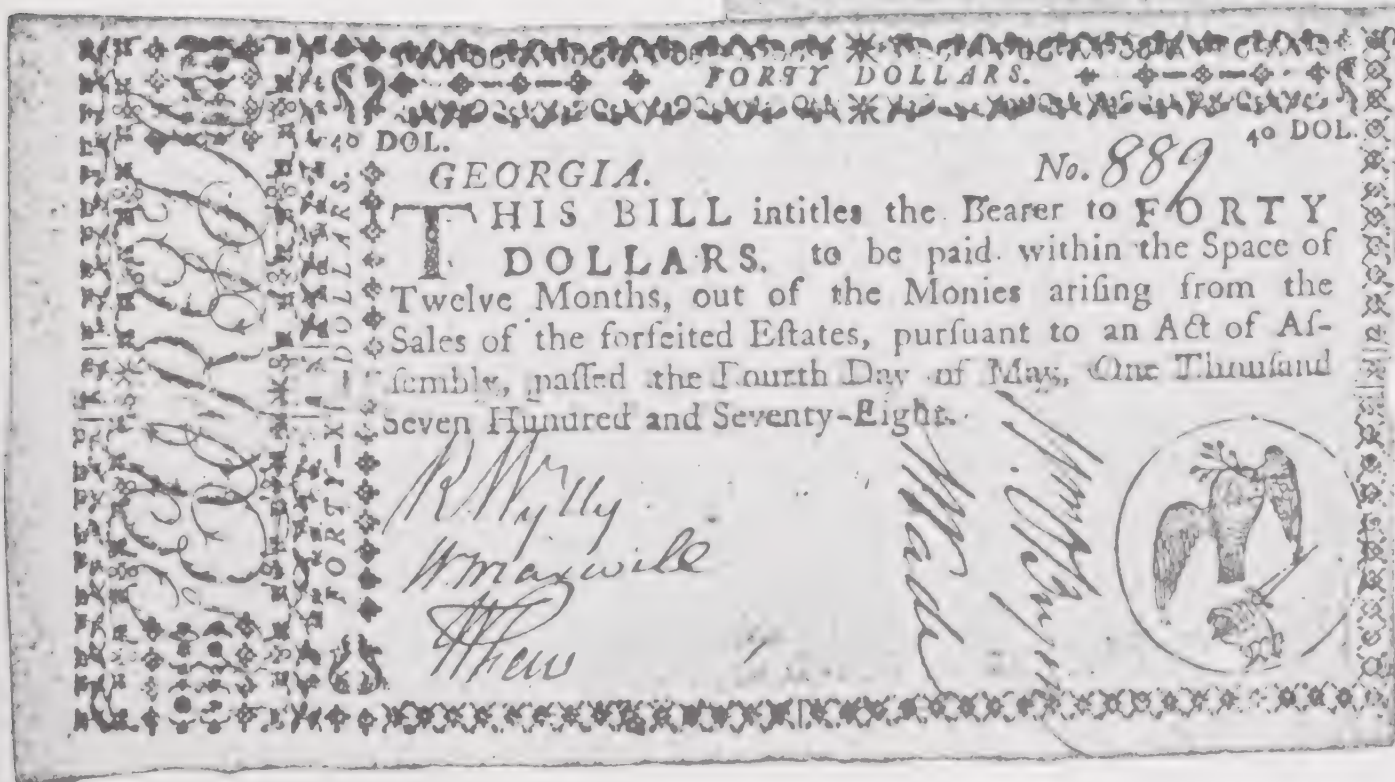 FORTY DOLLARS.
40 DOL.
40 DOL.
GEORGIA.
No. 889
THIS BILL intitles the Bearer to FORTY
DOLLARS. to be paid within the Space of
Twelve Months, out of the Monies ariſing from the
Sales of the forfeited Eſtates, purſuant to an Act of Aſ-
ſembly, paſſed the Fourth Day of May, One Thouſand
Seven Hundred and Seventy-Eight.
R Wylly
Wm maxwill
Wade
FORTY-XL-DOLLARS.